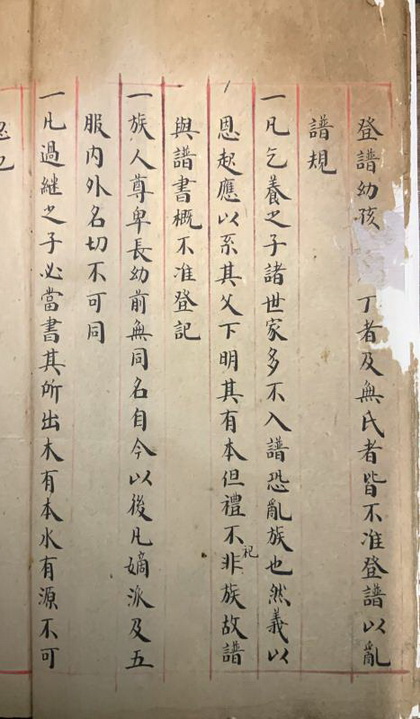 登譜幼孩丁者及無氏者皆不准登譜以亂
譜規
一凡乞養之子諸世家多不入譜恐亂族也然義以
恩起應以系其父下明其有本但禮不祀非族故譜
與譜書概不准登記
一族人尊卑長幼前無同名自今以後凡嫡派及五
服內外名切不可同
一凡過繼之子必當書其所出木有本水有源不可
忽也